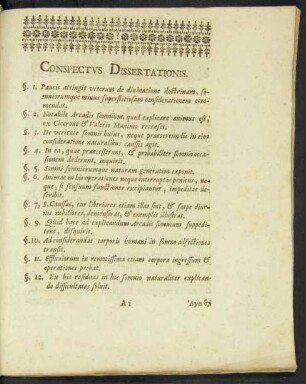 CONSPECTVS DISSERTATIONIS.
§. 1. Paucis attingit veterum de divinatione doctrinam, so-
mniorumque minus superstitiosam considerationem com-
mendat.
§. 2. Notabile Arcadis somnium, quod explicare animus est;
ex Cicerone & Valerio Maximo recenset.
§. 3. De veritate somnii huius, neque praeternaturalis in eius
consideratione naturalibus causis agit.
§. 4. In ea, quae praecesserunt, & probabiliter somnio occa-
sionem dederunt, inquirit.
§. 5. Somni somniorumque naturam generatim exponit.
§. 6. Animae in his operationes neque interruptas penitus, ne-
que, si sensuum functiones excipiantur, impeditas de-
scribit.
§. 7, 8. Caussas, cur liberiores etiam illae sint, & saepe diur-
nis nobiliores, demonstrat, & exemplis illustrat.
§. 9. Quid haec ad explicandum Arcadis somnium suppedi-
tent, disquirit.
§. 10. Ad considerandas corporis humani in somno adfectiones
transit.
§. 11. Effluviorum in remotissima etiam corpora ingressum &
operationes probat.
§. 12. Ex his residuas in hoc somnio naturaliter explican-
do difficultates solvit.
A 2